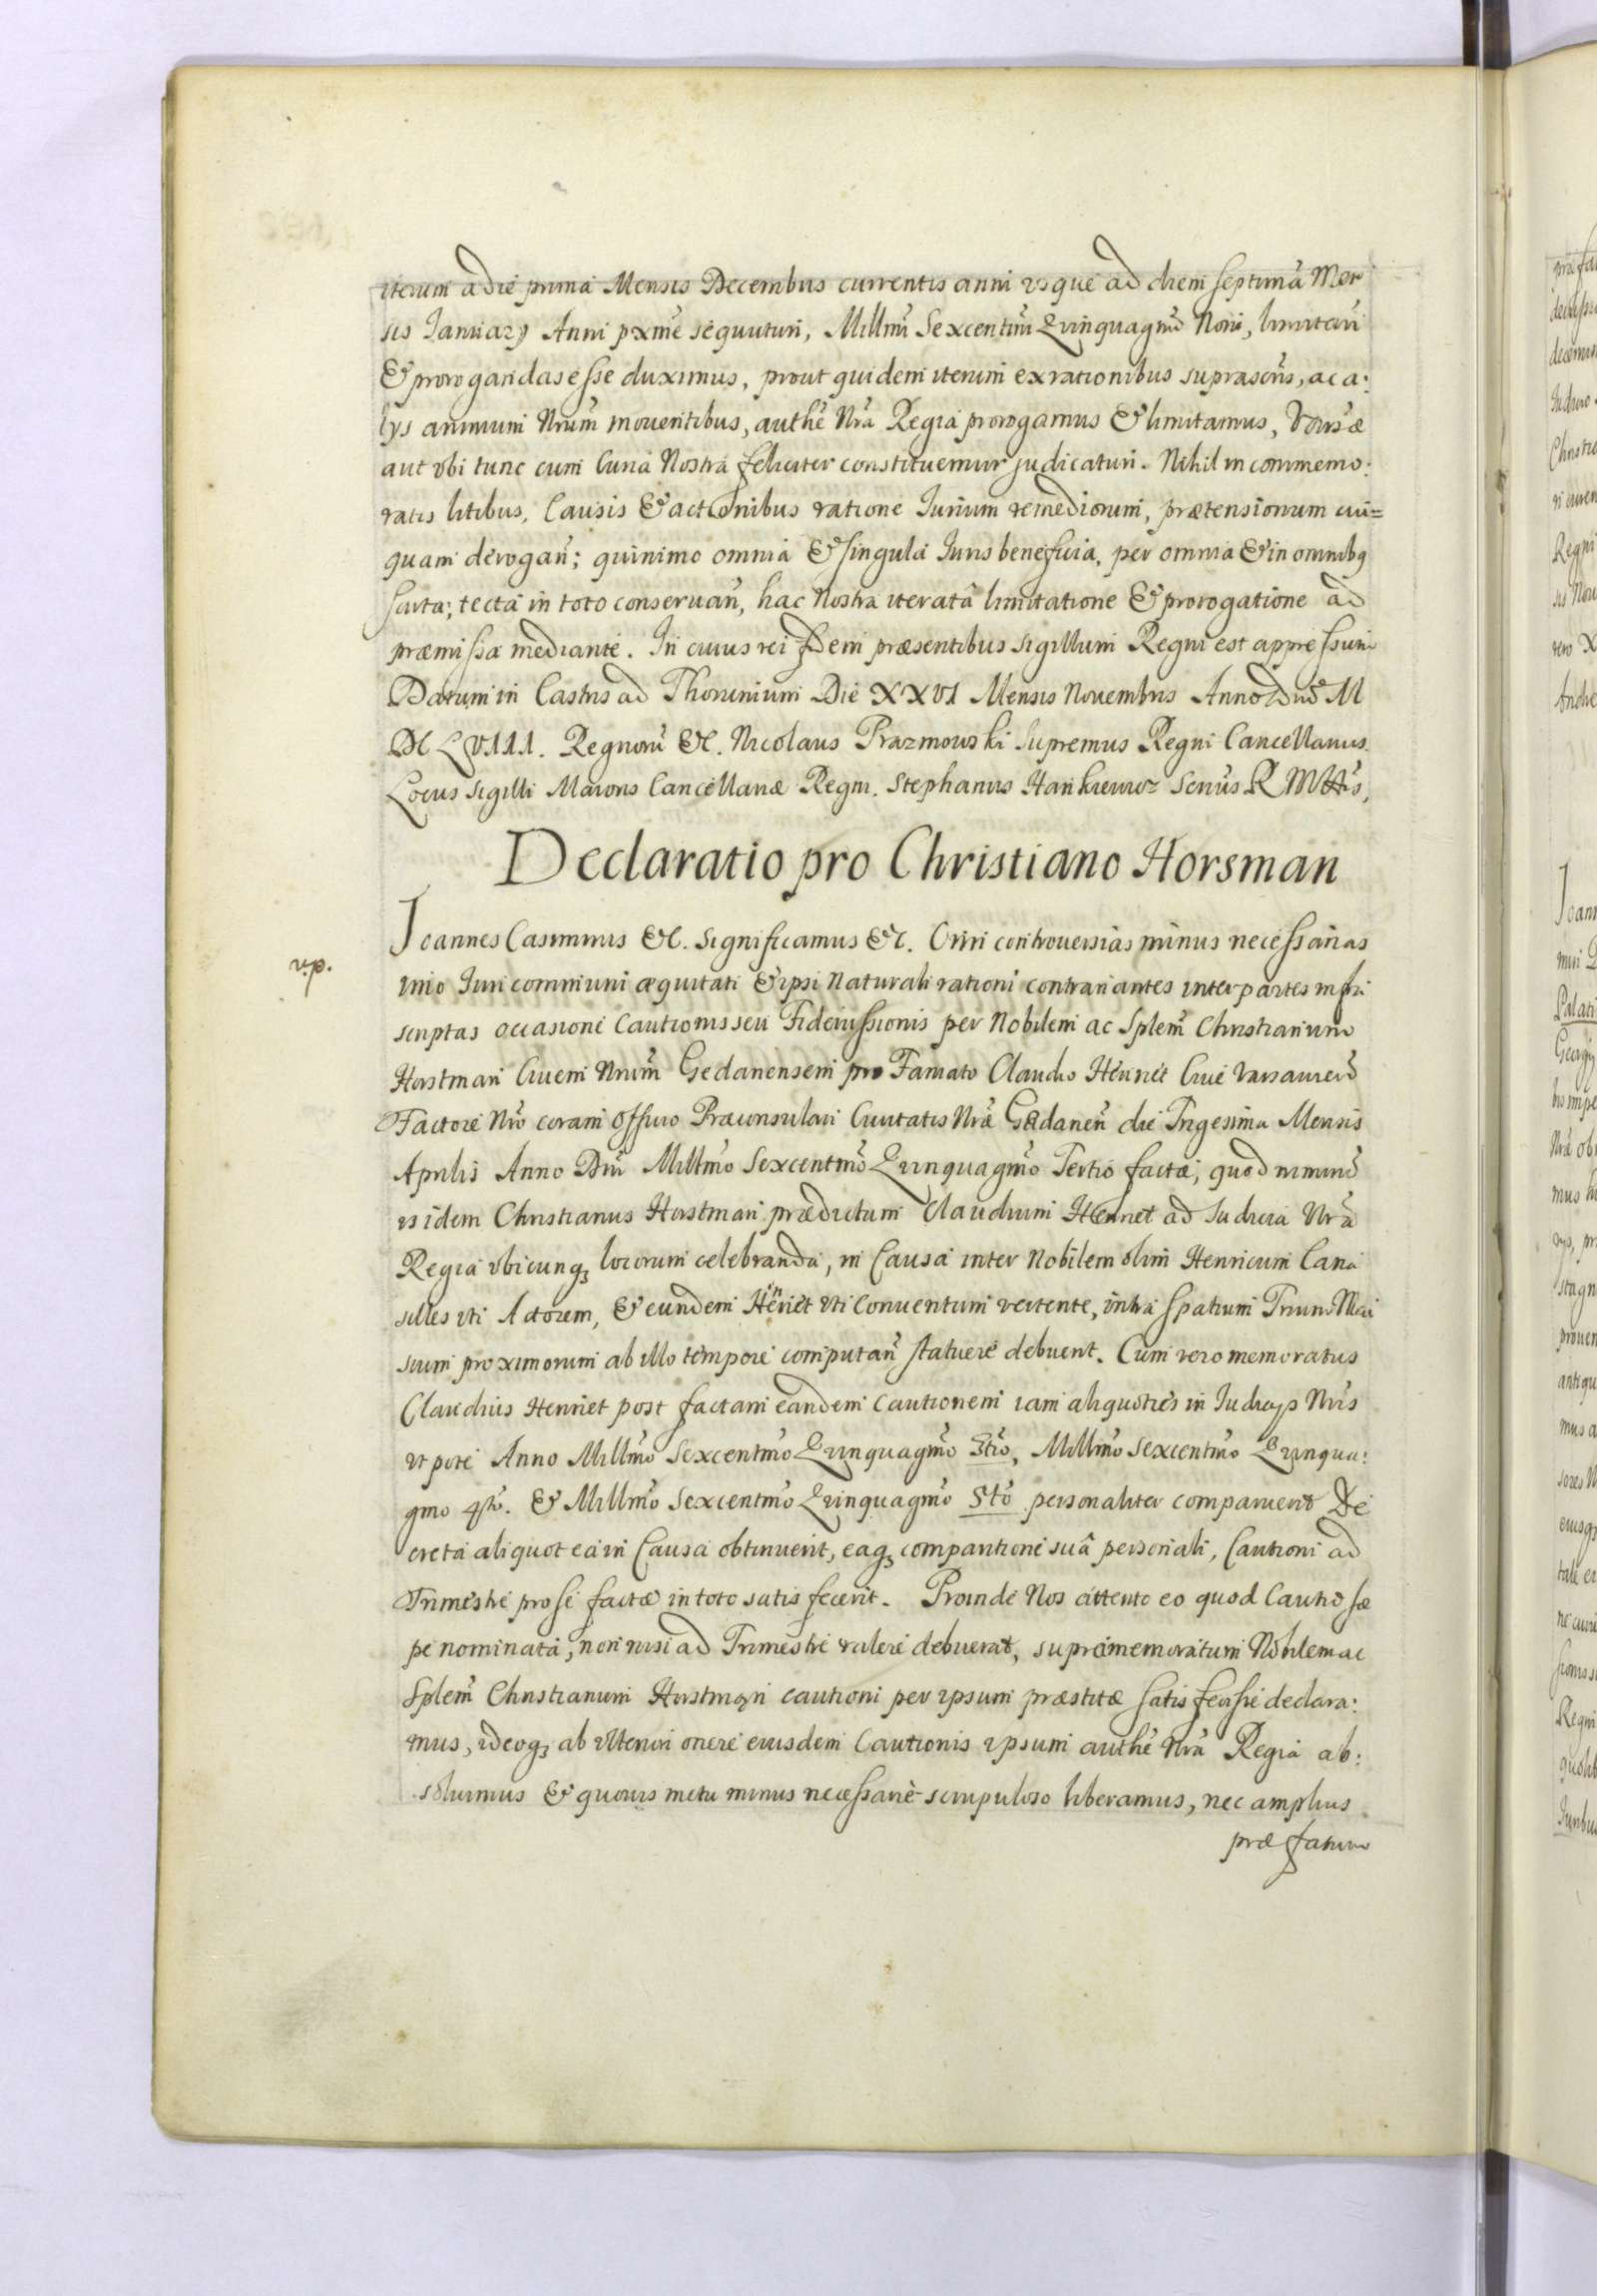 iterum a die prima Mensis Decembris currentis anni usque ad diem septimã Men
sis Ianuarij Anni pxmẽ sequuturi, Millmĩ Sexcentmĩ Quinquagmĩ Noni, limitari
& prorogandas esse duximus, prout quidem iterum ex rationibus suprascrĩs, ac a:
lijs animum Nrũm moventibus, authẽ Nrã Regia prorogamus & limitamus, Varsae
aut ubi tunc cum Curia Nostra feliciter constituemur judicaturi. Nihil in commemo:
ratis litibus, Causis & actionibus ratione Iurium remediorum, prætensionum cui=
quam derogañ; quinimo omnia & singula Iuris beneficia, per omnia & in omnibq
sarta, tecta in toto conseruañ, hac Nostra iterata limitatione & prorogatione ad
præmissa mediante. In cuius rei fidem præsentibus sigillum Regni est appressum
Datum in Castris ad Thorunium Die XXVI Mensis Novembris Anno Dnĩ M
DC LVIII. Regnorũ &c. Nicolaus Prazmowski Supremus Regni Cancellarius
Locus Sigilli Maioris Cancellariæ Regni. Stephanus Hankiewicz Secrius R Mttis,
Declaratio pro Christiano Horsman
Ioannes Casimirus &c. Significamus &c. Oriri controversias minus necessarias
v.p.
imo Iuri communi æquitati & ipsi Naturali rationi contrariantes inter partes infra
scriptas occasione Cautionis seu Fideiussionis per Nobilem ac Splem̃ Christianum
Horstman Civem Nrũm Gedanensem pro Famato Claudio Henriet Cive Varsaviens̃
Factore Nrõ coram Officio Præconsulari Civitatis Nræ̃ Gedaneñ die Trigesima Mensis
Aprilis Anno Dnĩ Millmõ Sexcentmõ Quinquagmõ Tertio factæ, quod nimirũ
is idem Christianus Horstman prædictum Claudium Henriet ad Iudicia Nrã
Regia ubicunq; locorum celebranda, in Causa inter Nobilem olim Henricum Cana
silles uti Actorem, & eundem Henriet uti Conventum vertente, intra spatium Trium Men
sium proximorum ab illo tempore computañ statuere debuerit. Cum vero memoratus
Claudius Henriet post factam eandem Cautionem iam aliquoties in Iudicijs Nrĩs
ut pote Anno Millmõ Sexcentmõ Quinquagmõ 3tiõ, Millmõ Sexcentmõ Quinqua:
gmo 4tõ. & Millmõ Sexcentmõ Quinquagmõ 5tõ personaliter comparuerit De
creta aliquot ea in Causa obtinuerit, eaq; comparitione suâ personali, Cautioni ad
Trimestre pro se factæ in toto satisfecerit. Proinde Nos attento eo quod Cautio sæ
pe nominata, non nisi ad Trimestre valere debuerat, supramemoratum Nobilem ac
Splem̃ Christianum Horstman cautioni per ipsum præstitæ satisfecisse declara:
mus, ideoq; ab ulteriori onere eiusdem Cautionis ipsum authẽ Nrã Regia ab:
solvimus & quovis metu minus necessariè scrupuloso liberamus, nec amplius
præfatum